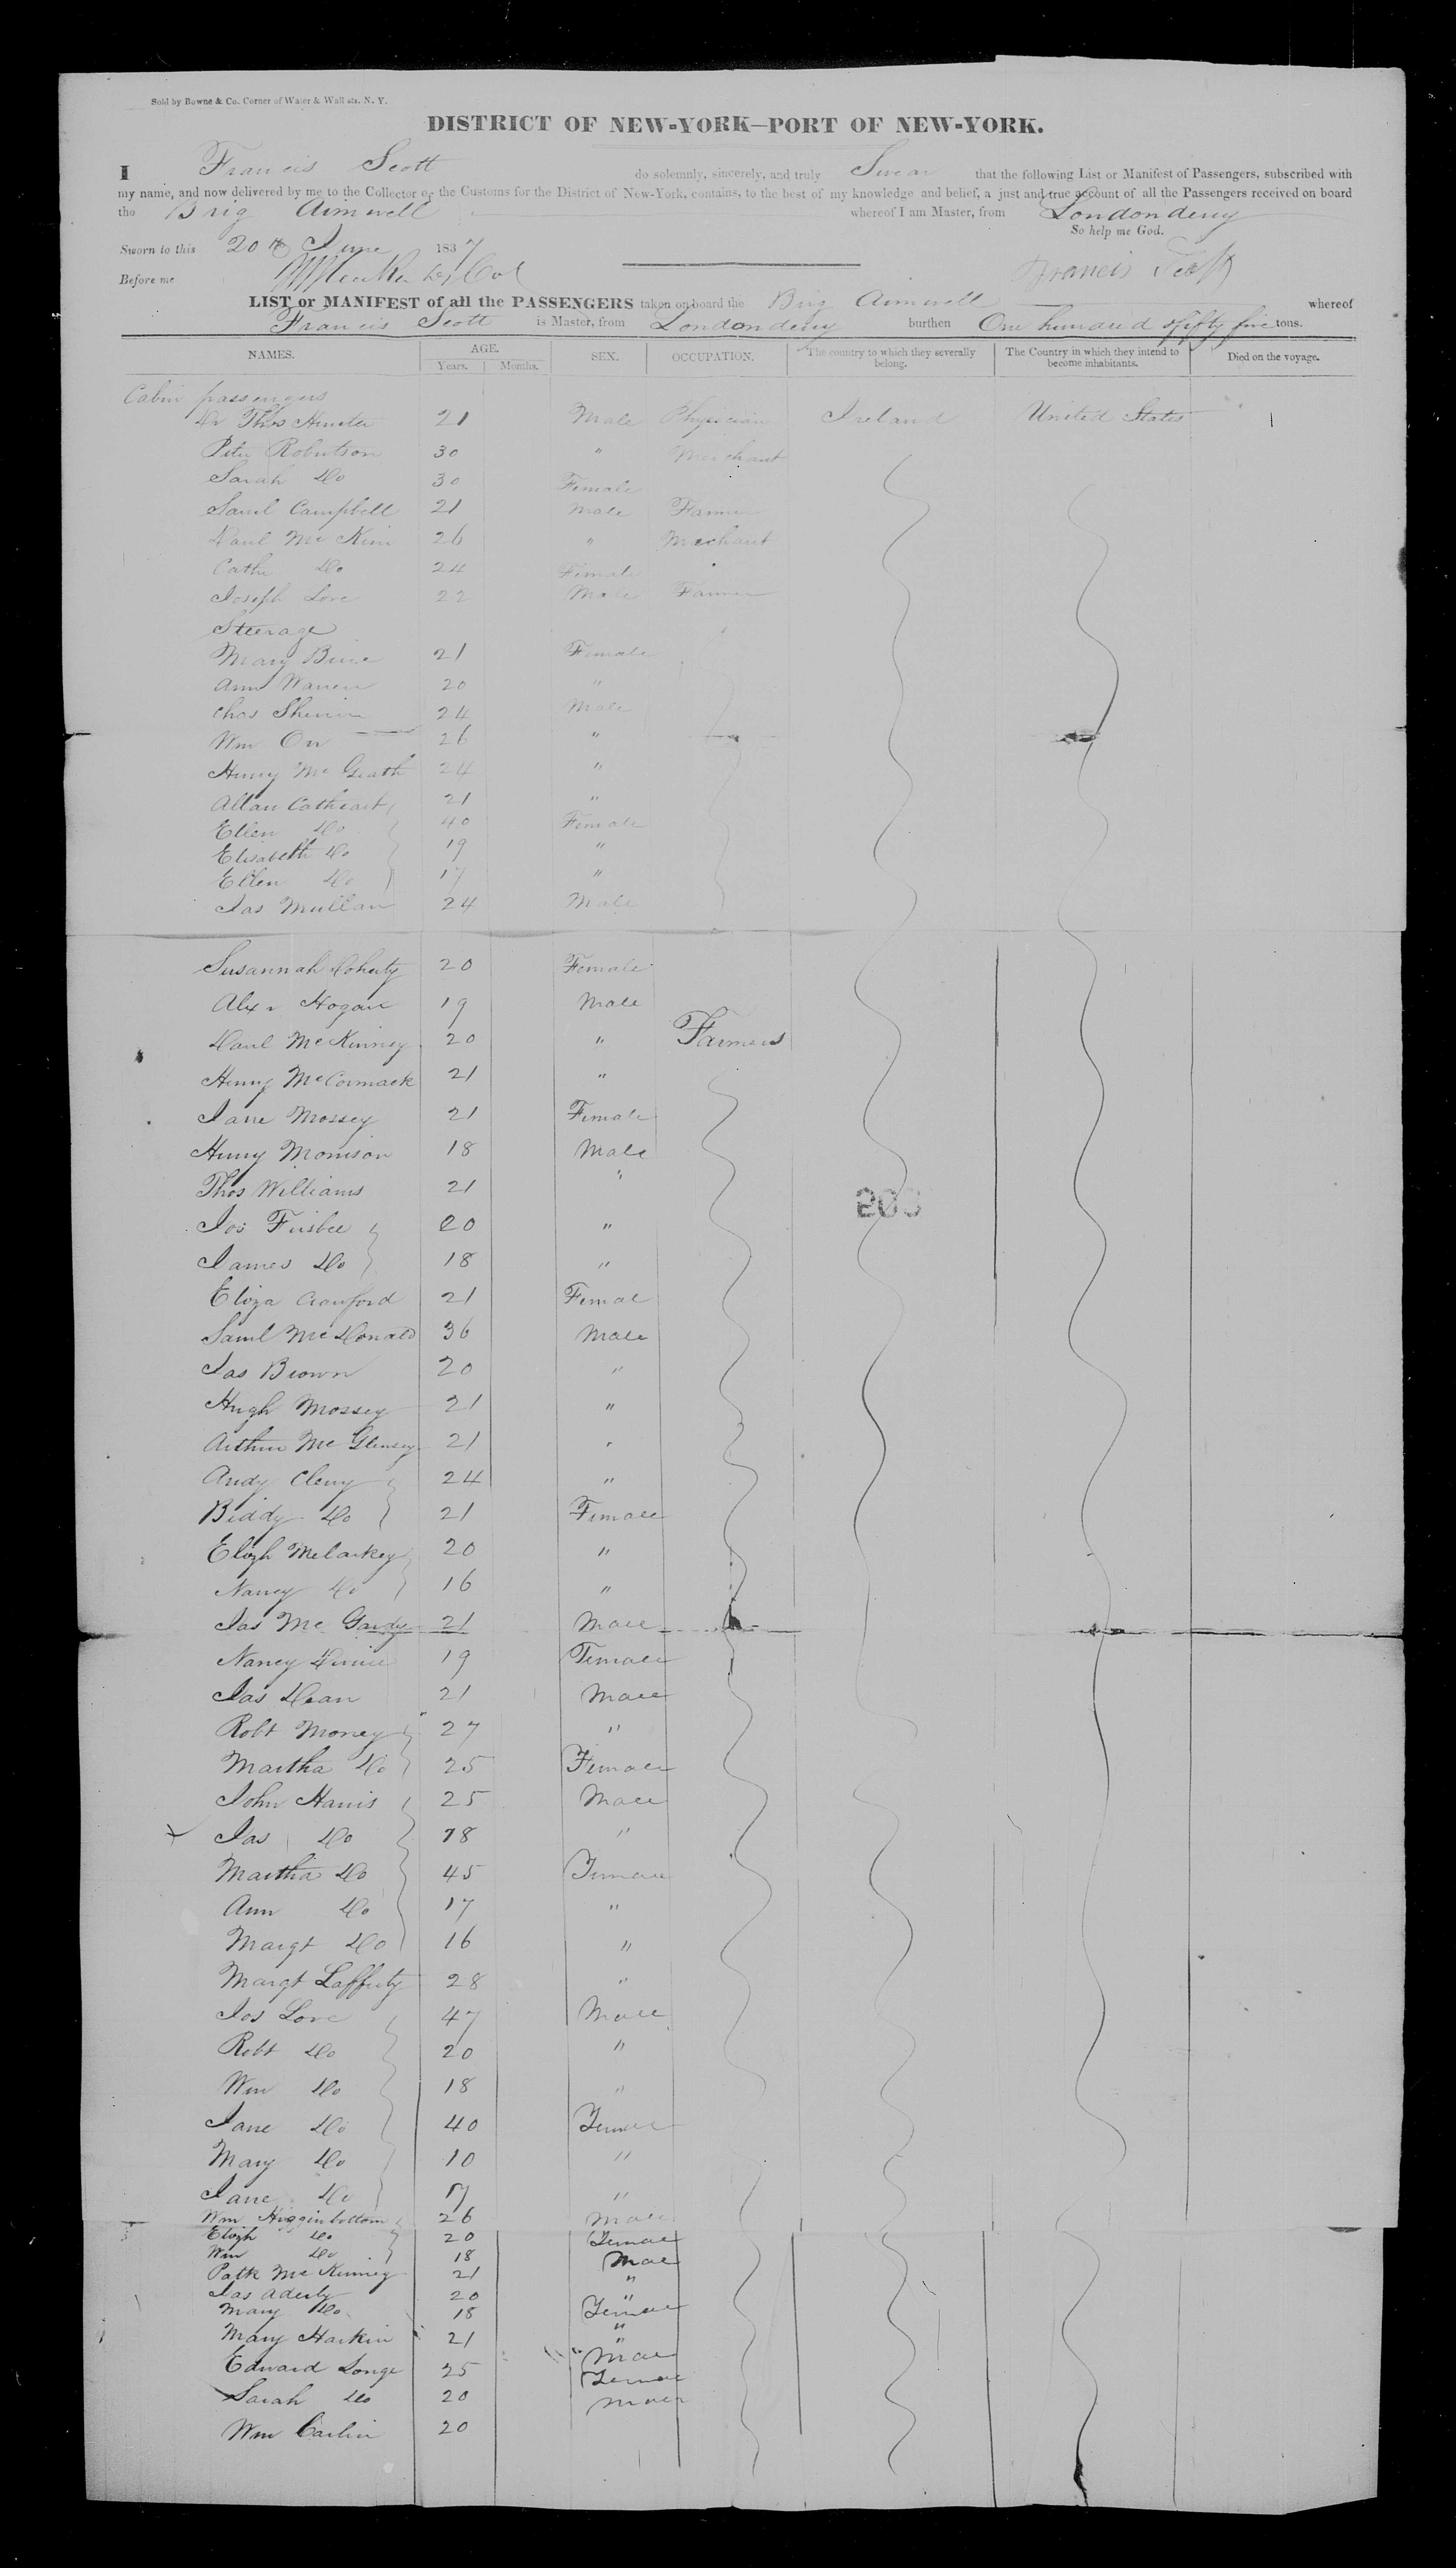 Sold by Bowne & Co. Corner of Water & Wall sts. N. Y.
DISTRICT OF NEW-YORK—PORT OF NEW-YORK.
I Francis Scott do solemnly, sincerely, and truly Swear that the following List or Manifest of Passengers, subscribed with
my name, and now delivered by me to the Collector of the Customs for the District of New-York, contains, to the best of my knowledge and belief, a just and true account of all the Passengers received on board
the Brig Aimwell whereof I am Master, from Londonderry
So help me God.
Sworn to this 20th June 1837
Before me Francis Scott
LIST or MANIFEST of all the PASSENGERS taken on board the Brig Aimwell whereof
Francis Scott is Master, from Londonderry burthen One hundred & fifty five tons.
NAMES. AGE. Years. Months. SEX. OCCUPATION. The country to which they severally belong. The Country in which they intend to become inhabitants. Died on the voyage.
Cabin passengers
Dr Thos Hunter 21 Male Physician Ireland United States
Peter Robertson 30 " Merchant
Sarah Do 30 Female
Saml Campbell 21 Male Farmer
Danl Mc Kim 26 " Merchant
Cathe Do 24 Female
Joseph Love 22 Male Farmer
Steerage
Mary 21 Female
Ann Warren 20 "
Chas 24 Male
Wm Orr 26 "
Henry Mc Grath 24 "
Allan Cathcart 21 "
Ellen Do 40 Female
Elisabeth Do 19 "
Ellen Do 17 "
Jas Mullan 24 Male
Susannah Doherty 20 Female
Alexr Hogan 19 Male
Danl McKinney 20 " Farmers
Henry McCormack 21 "
Jane Mossey 21 Female
Henry Morrison 18 Male
Thos Williams 21 "
203
Jos Frisbee 20 "
James Do 18 "
Eliza Crawford 21 Femal
Saml McDonald 36 Male
Jas Brown 20 "
Hugh Mossey 21 "
Arthur Mc 21 "
Andy Clery 24 "
Biddy Do 21 Female
Elizh McLarkey 20 "
Nancy Do 16 "
Jas Mc Gardy 21 Male
Nancy 19 Female
Jas Dean 21 Male
Robt Money 27 "
Martha Do 25 Female
John Harris 25 Male
Jas Do 18 "
Martha Do 45 Female
Ann Do 17 "
Margt Do 16 "
Margt Lafferty 28 "
Jos Love 47 Male
Robt Do 20 "
Wm Do 18 "
Jane Do 40 Female
Mary Do 10 "
Jane Do 7 "
Wm Higginbottom 26 Male
Elizh Do 20 Female
Wm Do 18 Male
Patk McKinney 21 "
Jas 20 "
Mary Do 18 Female
Mary Harkin 21 "
Edward Longe 25 Male
Sarah Do 20 Female
Wm Carlin 20 Male